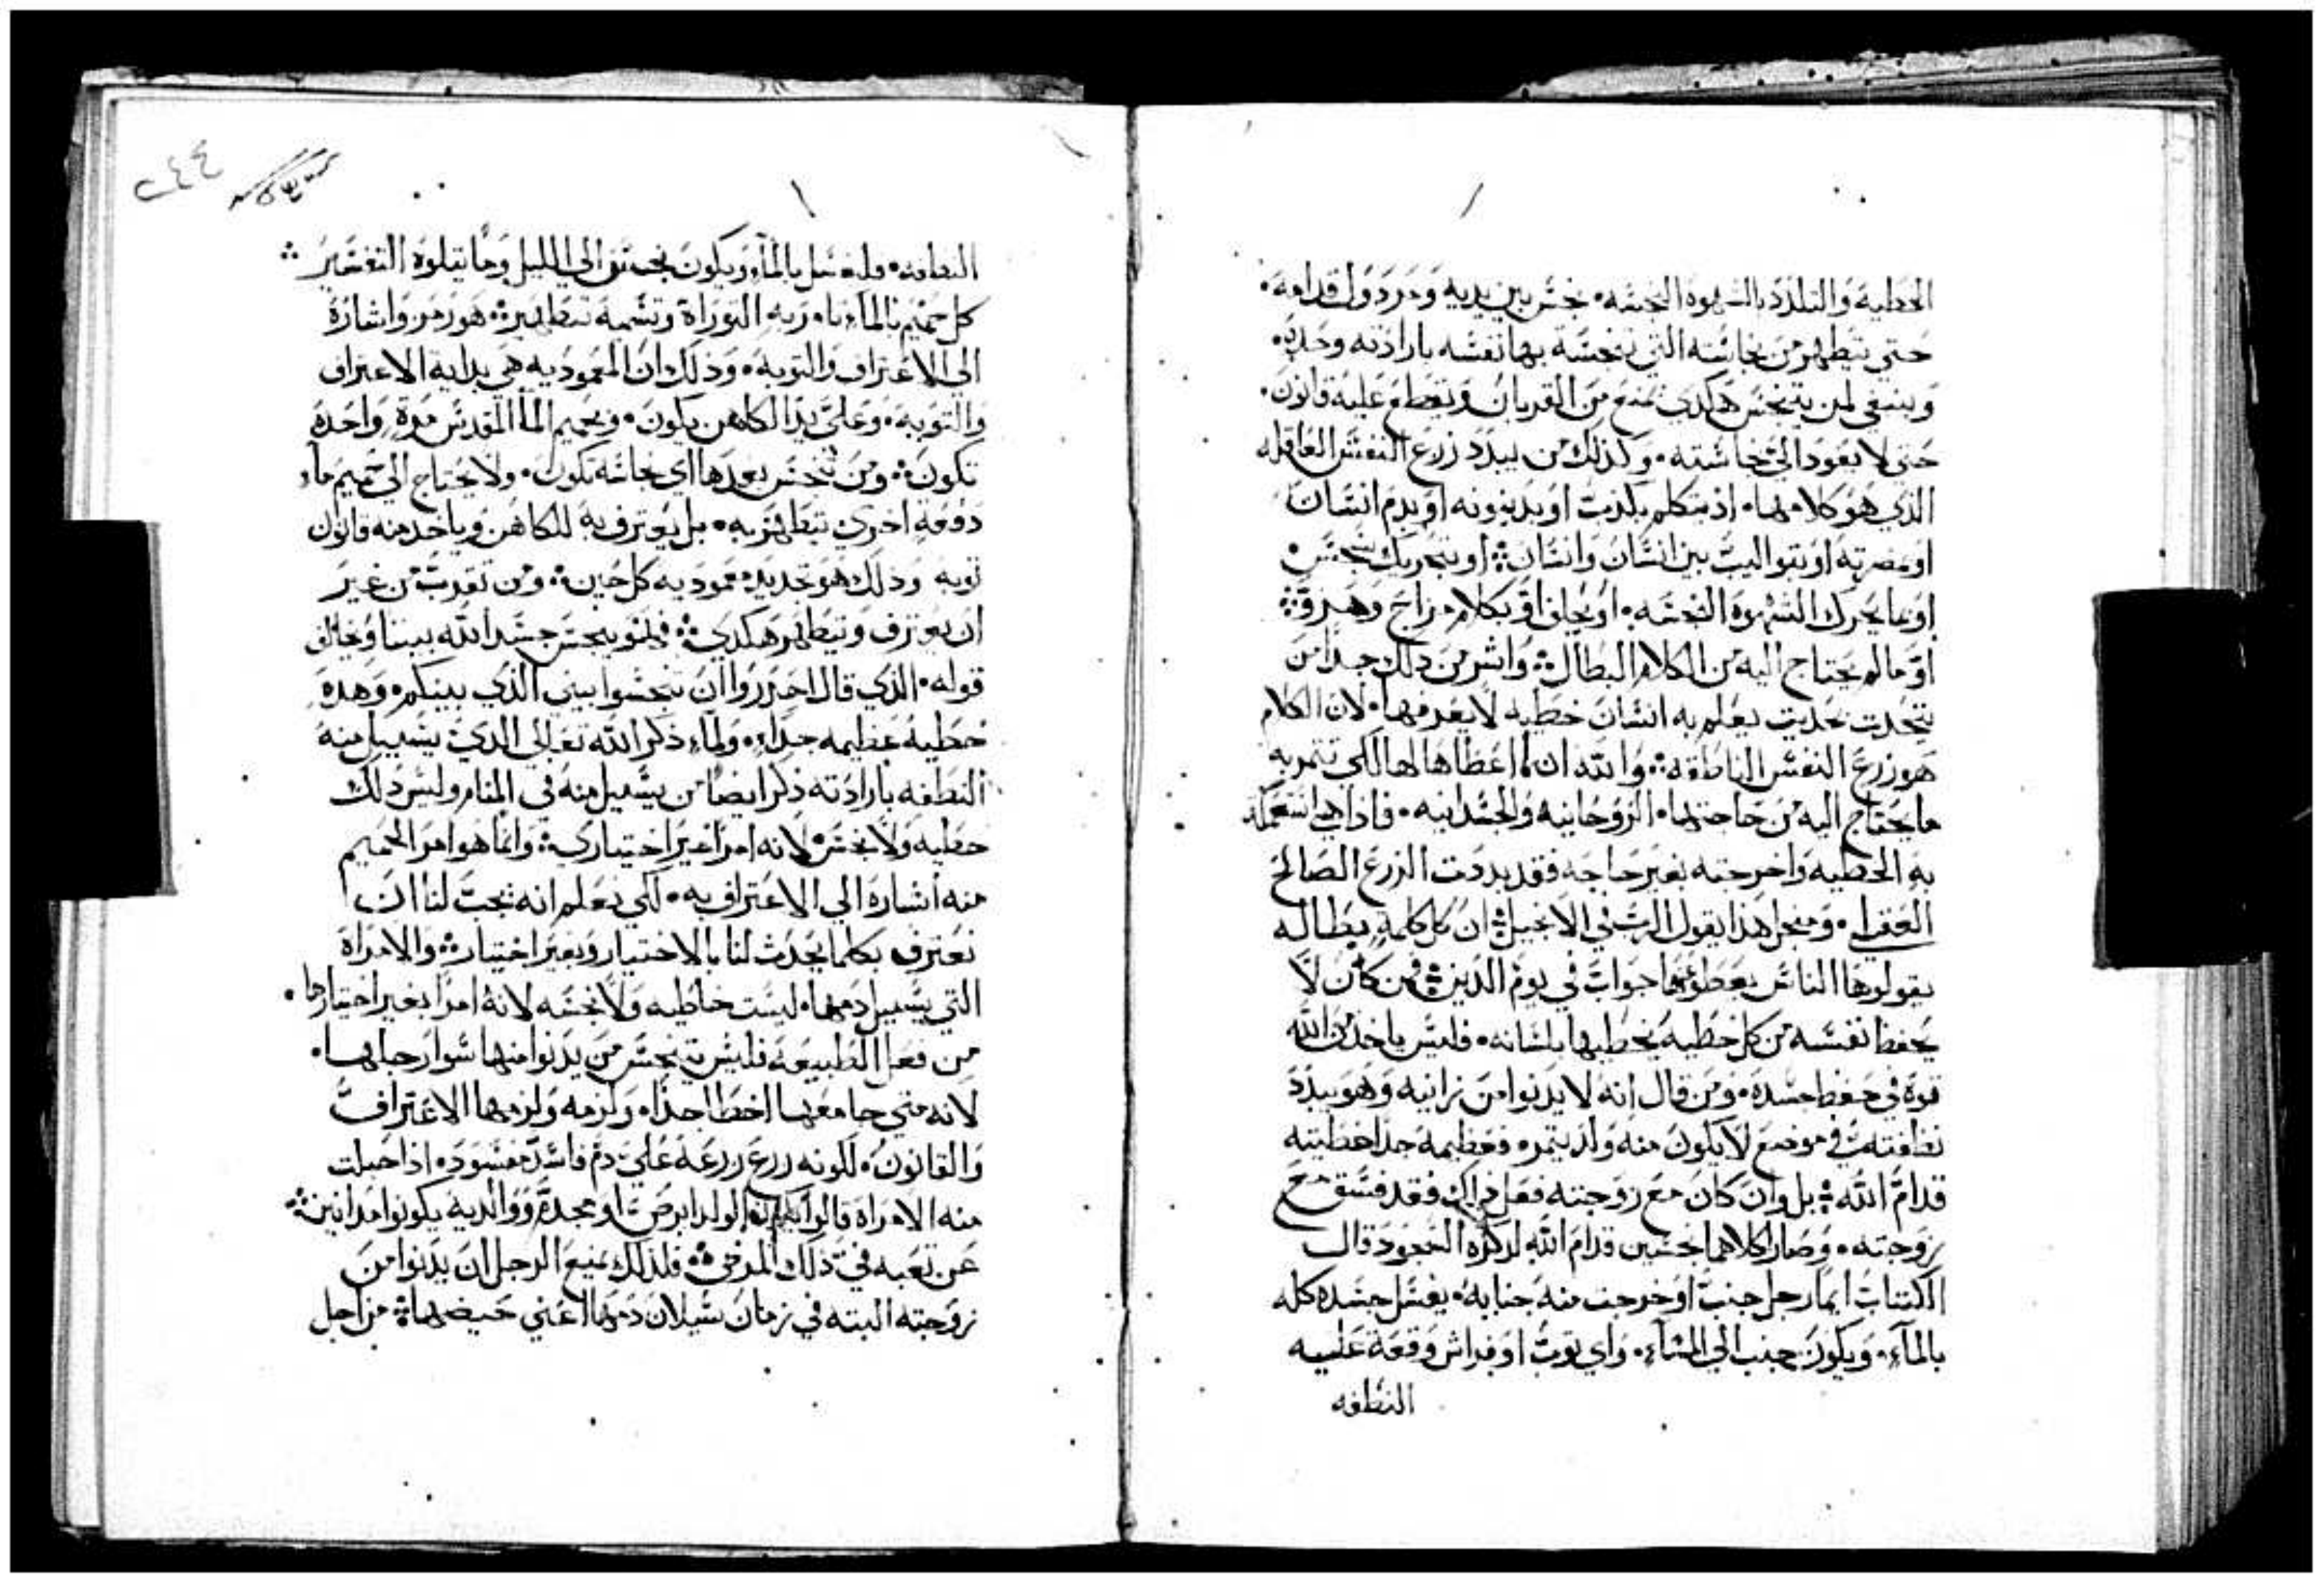 الخطية والتلذذ بالشهوة النجسه، نجس بين يديه ومردول قدامه.
حتي يتطهر من نجاسته التي نجسه بها نفسه بارادته وحده.
وينبغي لمن يتنجس هكدي يمنع من القربان ويقطع عليه قانون.
حتي لا يعود الي نجاسته. وكذلك من يبدد زرع النفس العاقله
الذي هو كلامها. اذ يتكلم بكدب او بدينونه او بدم انسان
او بقواليب بين انسان وانسان او بتحريك نجس
او بما يحرك الشهوة النجسه. او بحلف او بكلام مزاح وهزو
او مالم يحتاج اليه من الكلام البطال واشر من دلك جدا من
يتحدت بحديت يعلم به انسان خطيه لا يعرفها. لان الكلام
هو زرع النفس الناطقه والله انما اعطاها لها لكي تتمر به
ما يحتاج اليه من حاجتها. الروحانيه والجسدانيه. فادا هي استعملة
به الخطيه واخرجته بغير حاجه فقد بددت الزرع الصالح
العقلي. ومنجل هذا يقول الرب في الانجيل ان كل كلمة بطاله
يقولوها الناس يعطو عنها جواب في يوم الدين فمن كان لا
يحفظ نفسه من كل خطيه يخطيها بلسانه. فليس ياخد من الله
قوة في حفظ جسده. ومن قال انه لا يدنوا من زانيه وهو يبدد
نطافته في موضع لا يكون منه ولد يتمر. فعظيمه جدا خطيته
قدام الله بل وان كان مع زوجته فعل دلك فقد فسق مع
زوجته. وصارا كلاهما نجسين قدام الله
الكتاب ايما رجل جنب او خرجت منه جنابه. يغسل جسده كله
بالماء. ويكون جنب الي المساء. واي توب او فراش وقعة عليه
النطفه
٢٤٤
النطفه. فليغسل بالماء ويكون نجس الي الليل وما يتلوه التفسير
كل حميم بالماء تامر به التوراة وتسميه تطهير هو رمز واشارة
الي الاعتراف والتوبه. وذلك ان المعموديه هي بداية الاعتراف
والتوبة. وعلي يد الكاهن يكون. وبحميم الما المقدس مرة واحدة
تكون ومن تنجس بعدها اي نجاسه تكون. ولا يحتاج الي حميم ماء
دفعة اخري تتطهر به. بل يعترف به للكاهن وياخد منه قانون
توبه وذلك هو تجديد معموديه كل حين ومن تقرب من غير
ان يعترف ويتطهر هكدي فهو ينجس جسد الله بيننا ويخالف
قوله. الذي قال احدروا ان تنجسوا بيتي الذي بينكم. وهده
خطيه عظيمه جدا. ولما ذكر الله تعالي الدي يسيل منه
النطفه بارادته ذكر ايضا من يسيل منه في المنام وليس دلك
خطيه ولا نجس لانه امر غير اختياري وانما هو امر الحميم
منه اشارة الي الاعتراف به. لكي نعلم انه يجب لنا ان
نعترف بكلما يحدث لنا بالاختيار وبغير اختيار والامراة
التي يسيل دمها. ليست خاطيه ولا نجسه لانه امرا بغير اختيارها.
من فعل الطبيعه فليس يتنجس من يدنوا منها سوا رجلها.
لانه متي جامعها اخطا جدا. ولزمه ولزمها الاعتراف
والقانون. لكونه زرع زرعه علي دم فاسد مفسود. اذا حبلت
منه الامراة قالوا الولد ابرص او مجدم ووالديه يكونوا مدانين
عن تعبه في ذلك المرض فلذلك يمنع الرجل ان يدنوا من
زوجته البته في زمان سيلان دمها اعني حيضها من اجل